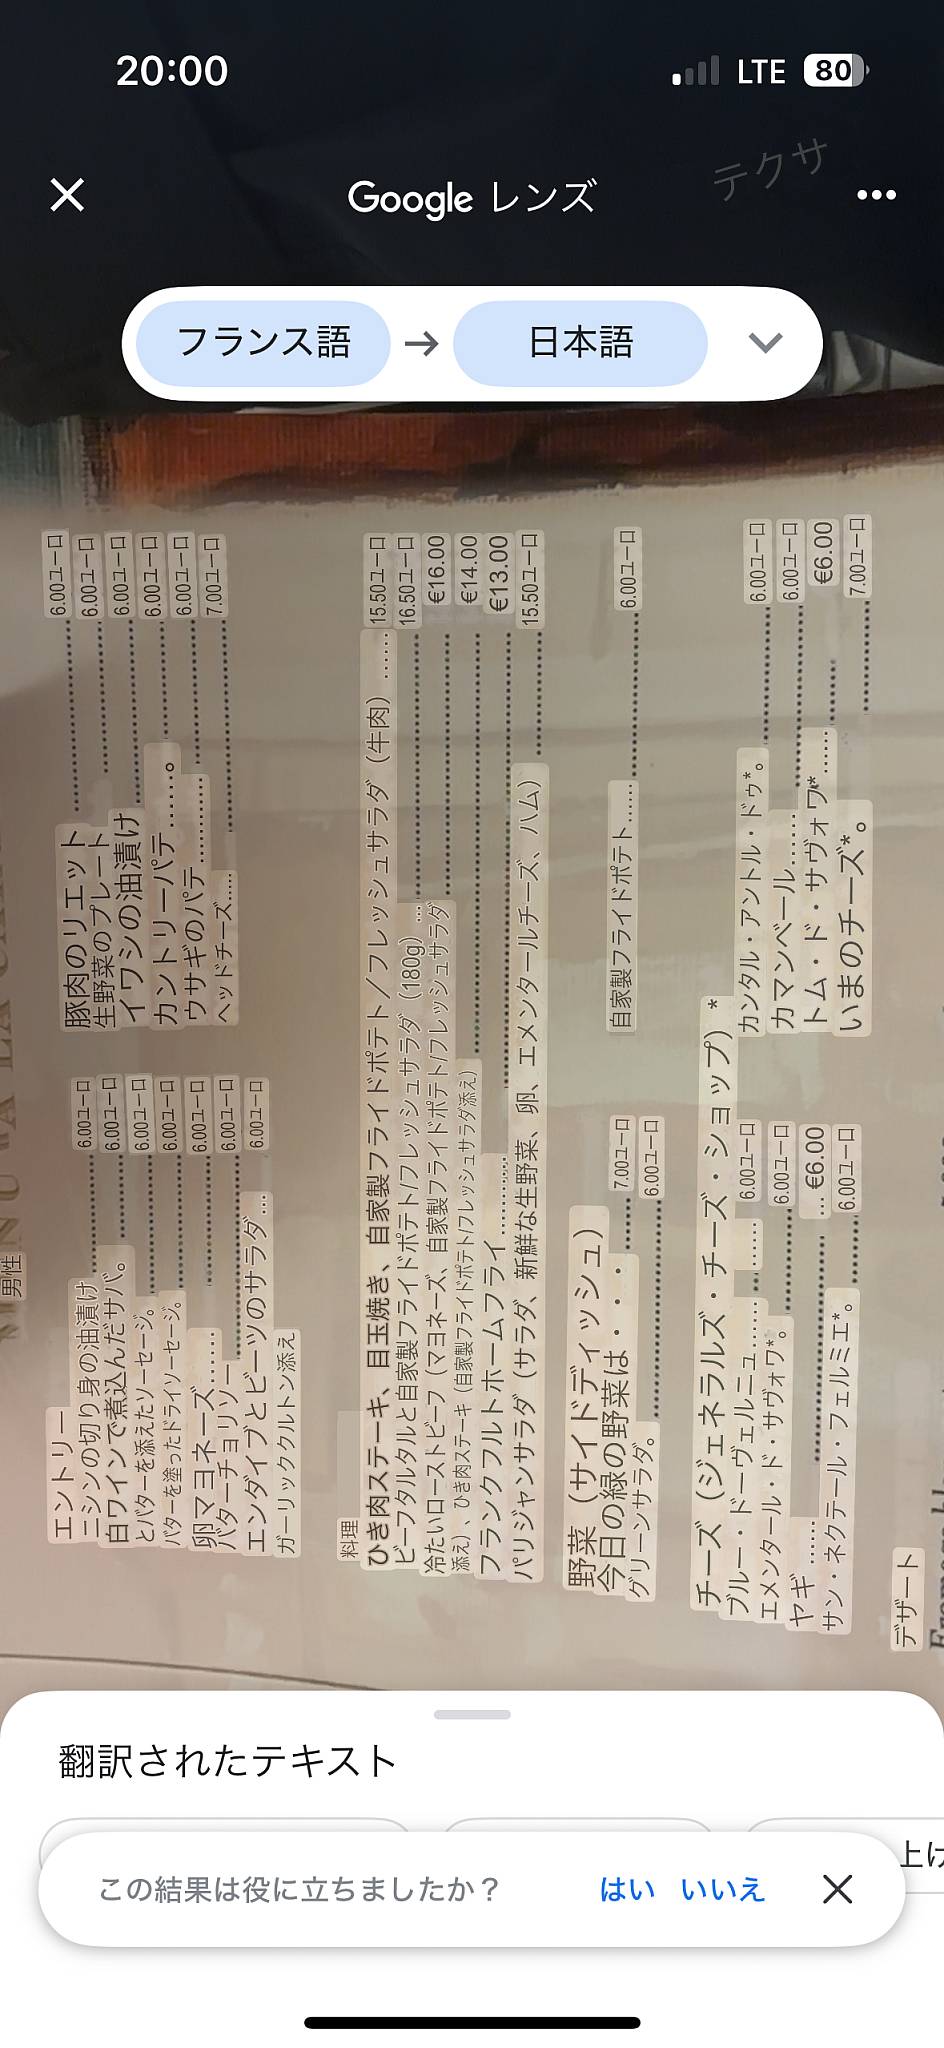 20:00
LTE 80
Google レンズ
テクサ
フランス語 → 日本語
男性
エントリー
ニシンの切り身の油漬け 6.00ユーロ
白ワインで煮込んだサバ。 6.00ユーロ
とバターを添えたソーセージ。 6.00ユーロ
バターを塗ったドライソーセージ。 6.00ユーロ
卵マヨネーズ…… 6.00ユーロ
バターチョリソー 6.00ユーロ
エンダイブとビーツのサラダ… 6.00ユーロ
ガーリッククルトン添え
豚肉のリエット 6.00ユーロ
生野菜のプレート 6.00ユーロ
イワシの油漬け 6.00ユーロ
カントリーパテ……。 6.00ユーロ
ウサギのパテ………… 6.00ユーロ
ヘッドチーズ…… 7.00ユーロ
料理
ひき肉ステーキ、目玉焼き、自家製フライドポテト/フレッシュサラダ（牛肉）…… 15.50ユーロ
ビーフタルタルと自家製フライドポテト/フレッシュサラダ（180g）… 16.50ユーロ
冷たいローストビーフ（マヨネーズ、自家製フライドポテト/フレッシュサラダ €16.00
添え）、ひき肉ステーキ（自家製フライドポテト/フレッシュサラダ添え） €14.00
フランクフルトホームフライ………… €13.00
パリジャンサラダ（サラダ、新鮮な生野菜、卵、エメンタールチーズ、ハム） 15.50ユーロ
野菜（サイドディッシュ）
今日の緑の野菜は・・・ 7.00ユーロ
グリーンサラダ。 6.00ユーロ
自家製フライドポテト…… 6.00ユーロ
チーズ（ジェネラルズ・チーズ・ショップ）*
ブルー・ドーヴェルニュ…… 6.00ユーロ
エメンタール・ド・サヴォワ*。 6.00ユーロ
ヤギ…… … €6.00
サン・ネクテール・フェルミエ*。 6.00ユーロ
カンタル・アントル・ドゥ*。 6.00ユーロ
カマンベール…… 6.00ユーロ
トム・ド・サヴォワ*…… €6.00
いまのチーズ*。 7.00ユーロ
デザート
翻訳されたテキスト
上げ
この結果は役に立ちましたか？ はい いいえ